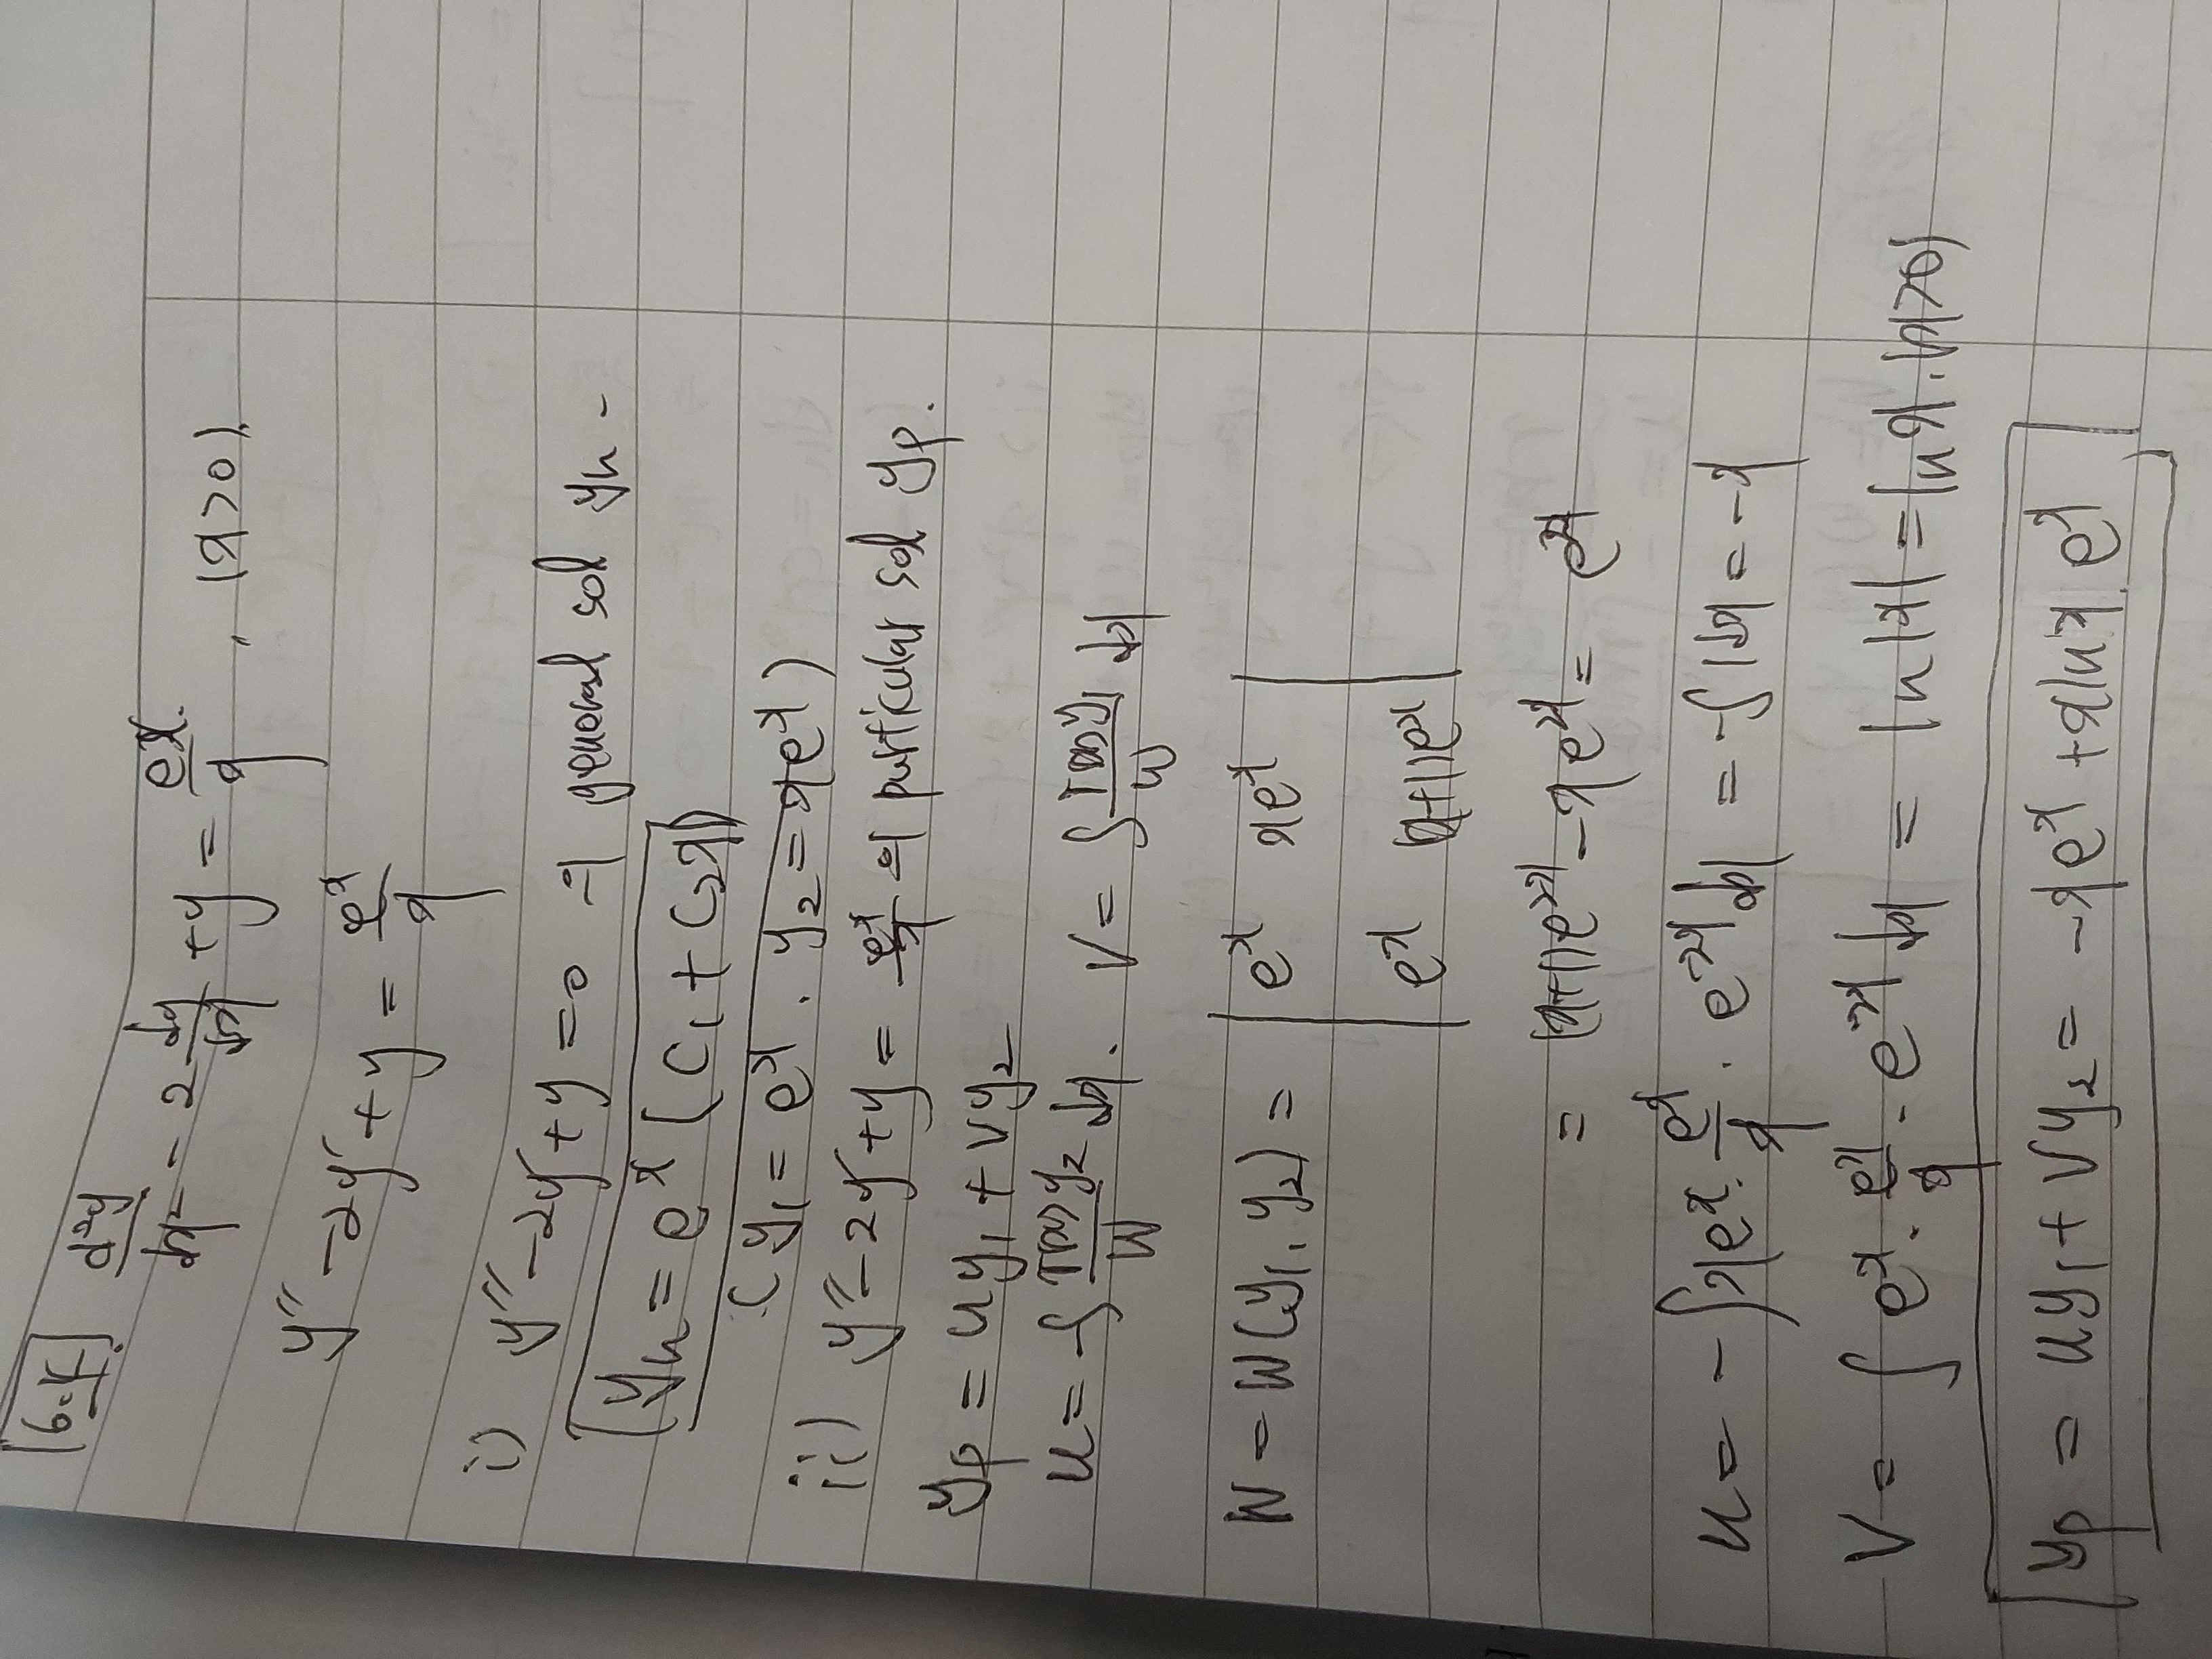 6.4. d²y/dx² - 2 dy/dx + y = eˣ/x , (x>0).
y'' - 2y' + y = eˣ/x
i) y'' - 2y' + y = 0 의 general sol yh.
yh = eˣ(C₁ + C₂x)
(y₁ = eˣ, y₂ = xeˣ)
ii) y'' - 2y' + y = eˣ/x 의 particular sol yp.
yp = uy₁ + vy₂
u = -∫ r(x)y₂/W dx, v = ∫ r(x)y₁/W dx
W = W(y₁, y₂) = | eˣ xeˣ |
| eˣ (x+1)eˣ |
= (x+1)e²ˣ - xe²ˣ = e²ˣ
u = -∫ xeˣ · eˣ/x · e⁻²ˣ dx = -∫ 1 dx = -x
v = ∫ eˣ · eˣ/x · e⁻²ˣ dx = ln|x| = ln x. (x>0)
yp = uy₁ + vy₂ = -xeˣ + x lnx eˣ